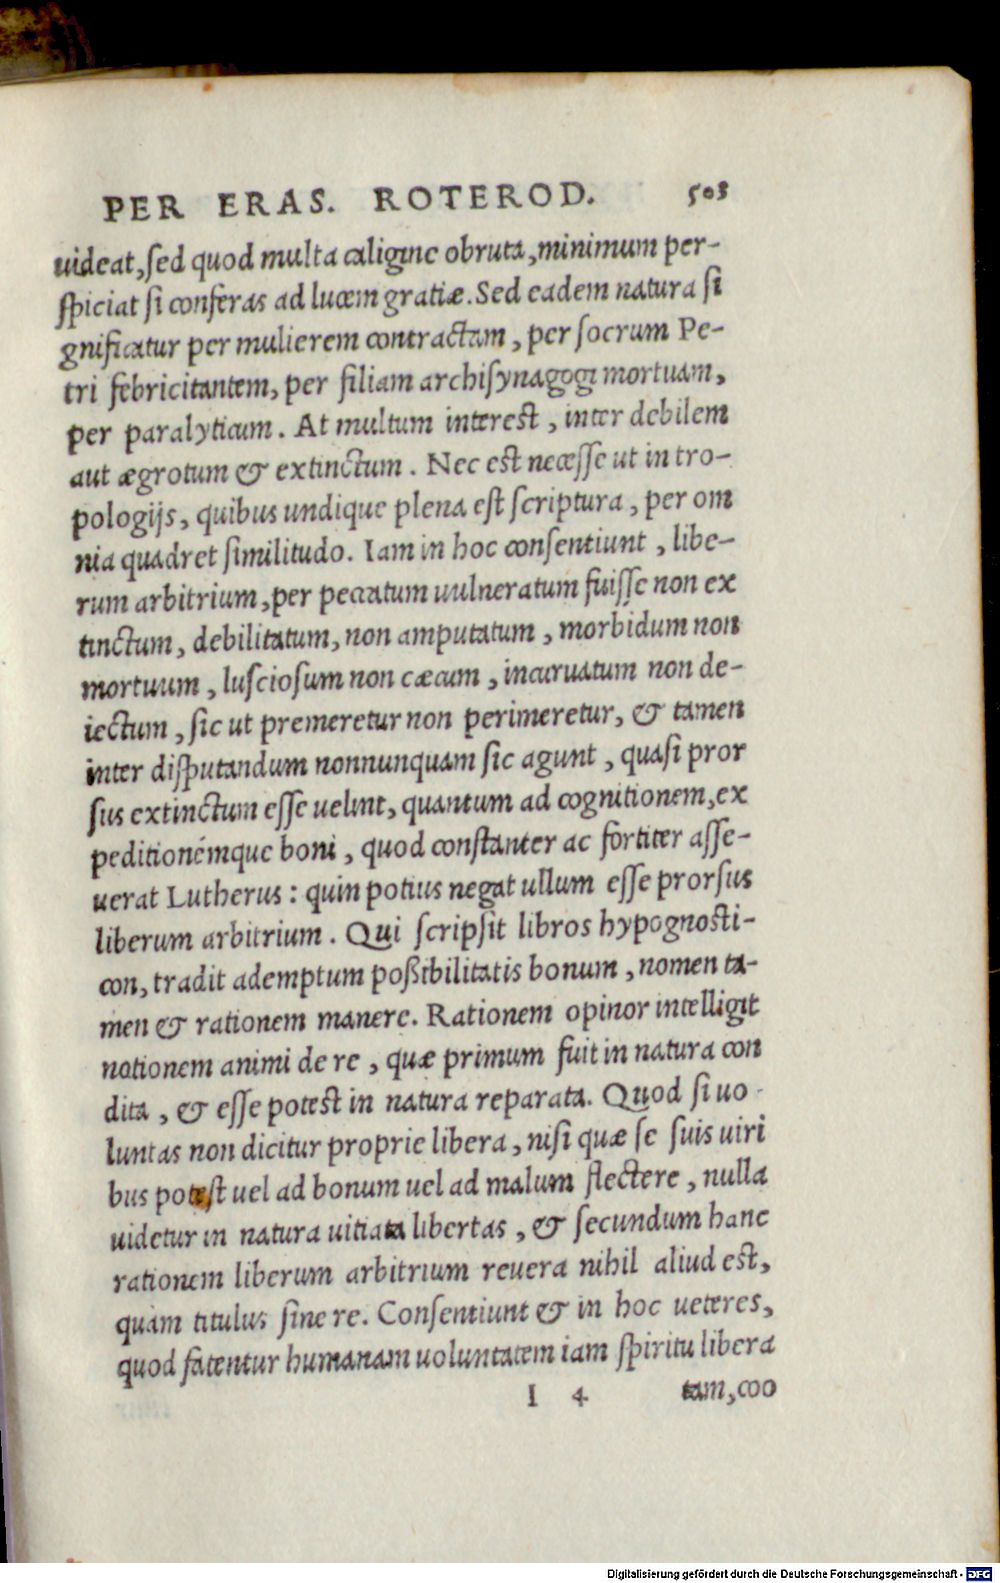 PER ERAS. ROTEROD. 503
uideat, sed quod multa caligine obruta, minimum per-
spiciat si conferas ad lucem gratiæ. Sed eadem natura si
gnificatur per mulierem contractam, per socrum Pe-
tri febricitantem, per filiam archisynagogi mortuam,
per paralyticum. At multum interest, inter debilem
aut ægrotum & extinctum. Nec est necesse ut in tro-
pologijs, quibus undique plena est scriptura, per om
nia quadret similitudo. Iam in hoc consentiunt, libe-
rum arbitrium, per peccatum uulneratum fuisse non ex
tinctum, debilitatum, non amputatum, morbidum non
mortuum, lusciosum non cæcum, incuruatum non de-
iectum, sic ut premeretur non perimeretur, & tamen
inter disputandum nonnunquam sic agunt, quasi pror
sus extinctum esse uelint, quantum ad cognitionem, ex
peditionémque boni, quod constanter ac fortiter asse-
uerat Lutherus: quin potius negat ullum esse prorsus
liberum arbitrium. Qui scripsit libros hypognosti-
con, tradit ademptum poßibilitatis bonum, nomen ta-
men & rationem manere. Rationem opinor intelligit
notionem animi de re, quæ primum fuit in natura con
dita, & esse potest in natura reparata. Quod si uo-
luntas non dicitur proprie libera, nisi quæ se suis uiri
bus potest uel ad bonum uel ad malum flectere, nulla
uidetur in natura uitiata libertas, & secundum hanc
rationem liberum arbitrium reuera nihil aliud est,
quàm titulus sine re. Consentiunt & in hoc ueteres,
quod fatentur humanam uoluntatem iam spiritu libera
I 4 tam, coo
Digitalisierung gefördert durch die Deutsche Forschungsgemeinschaft - DFG